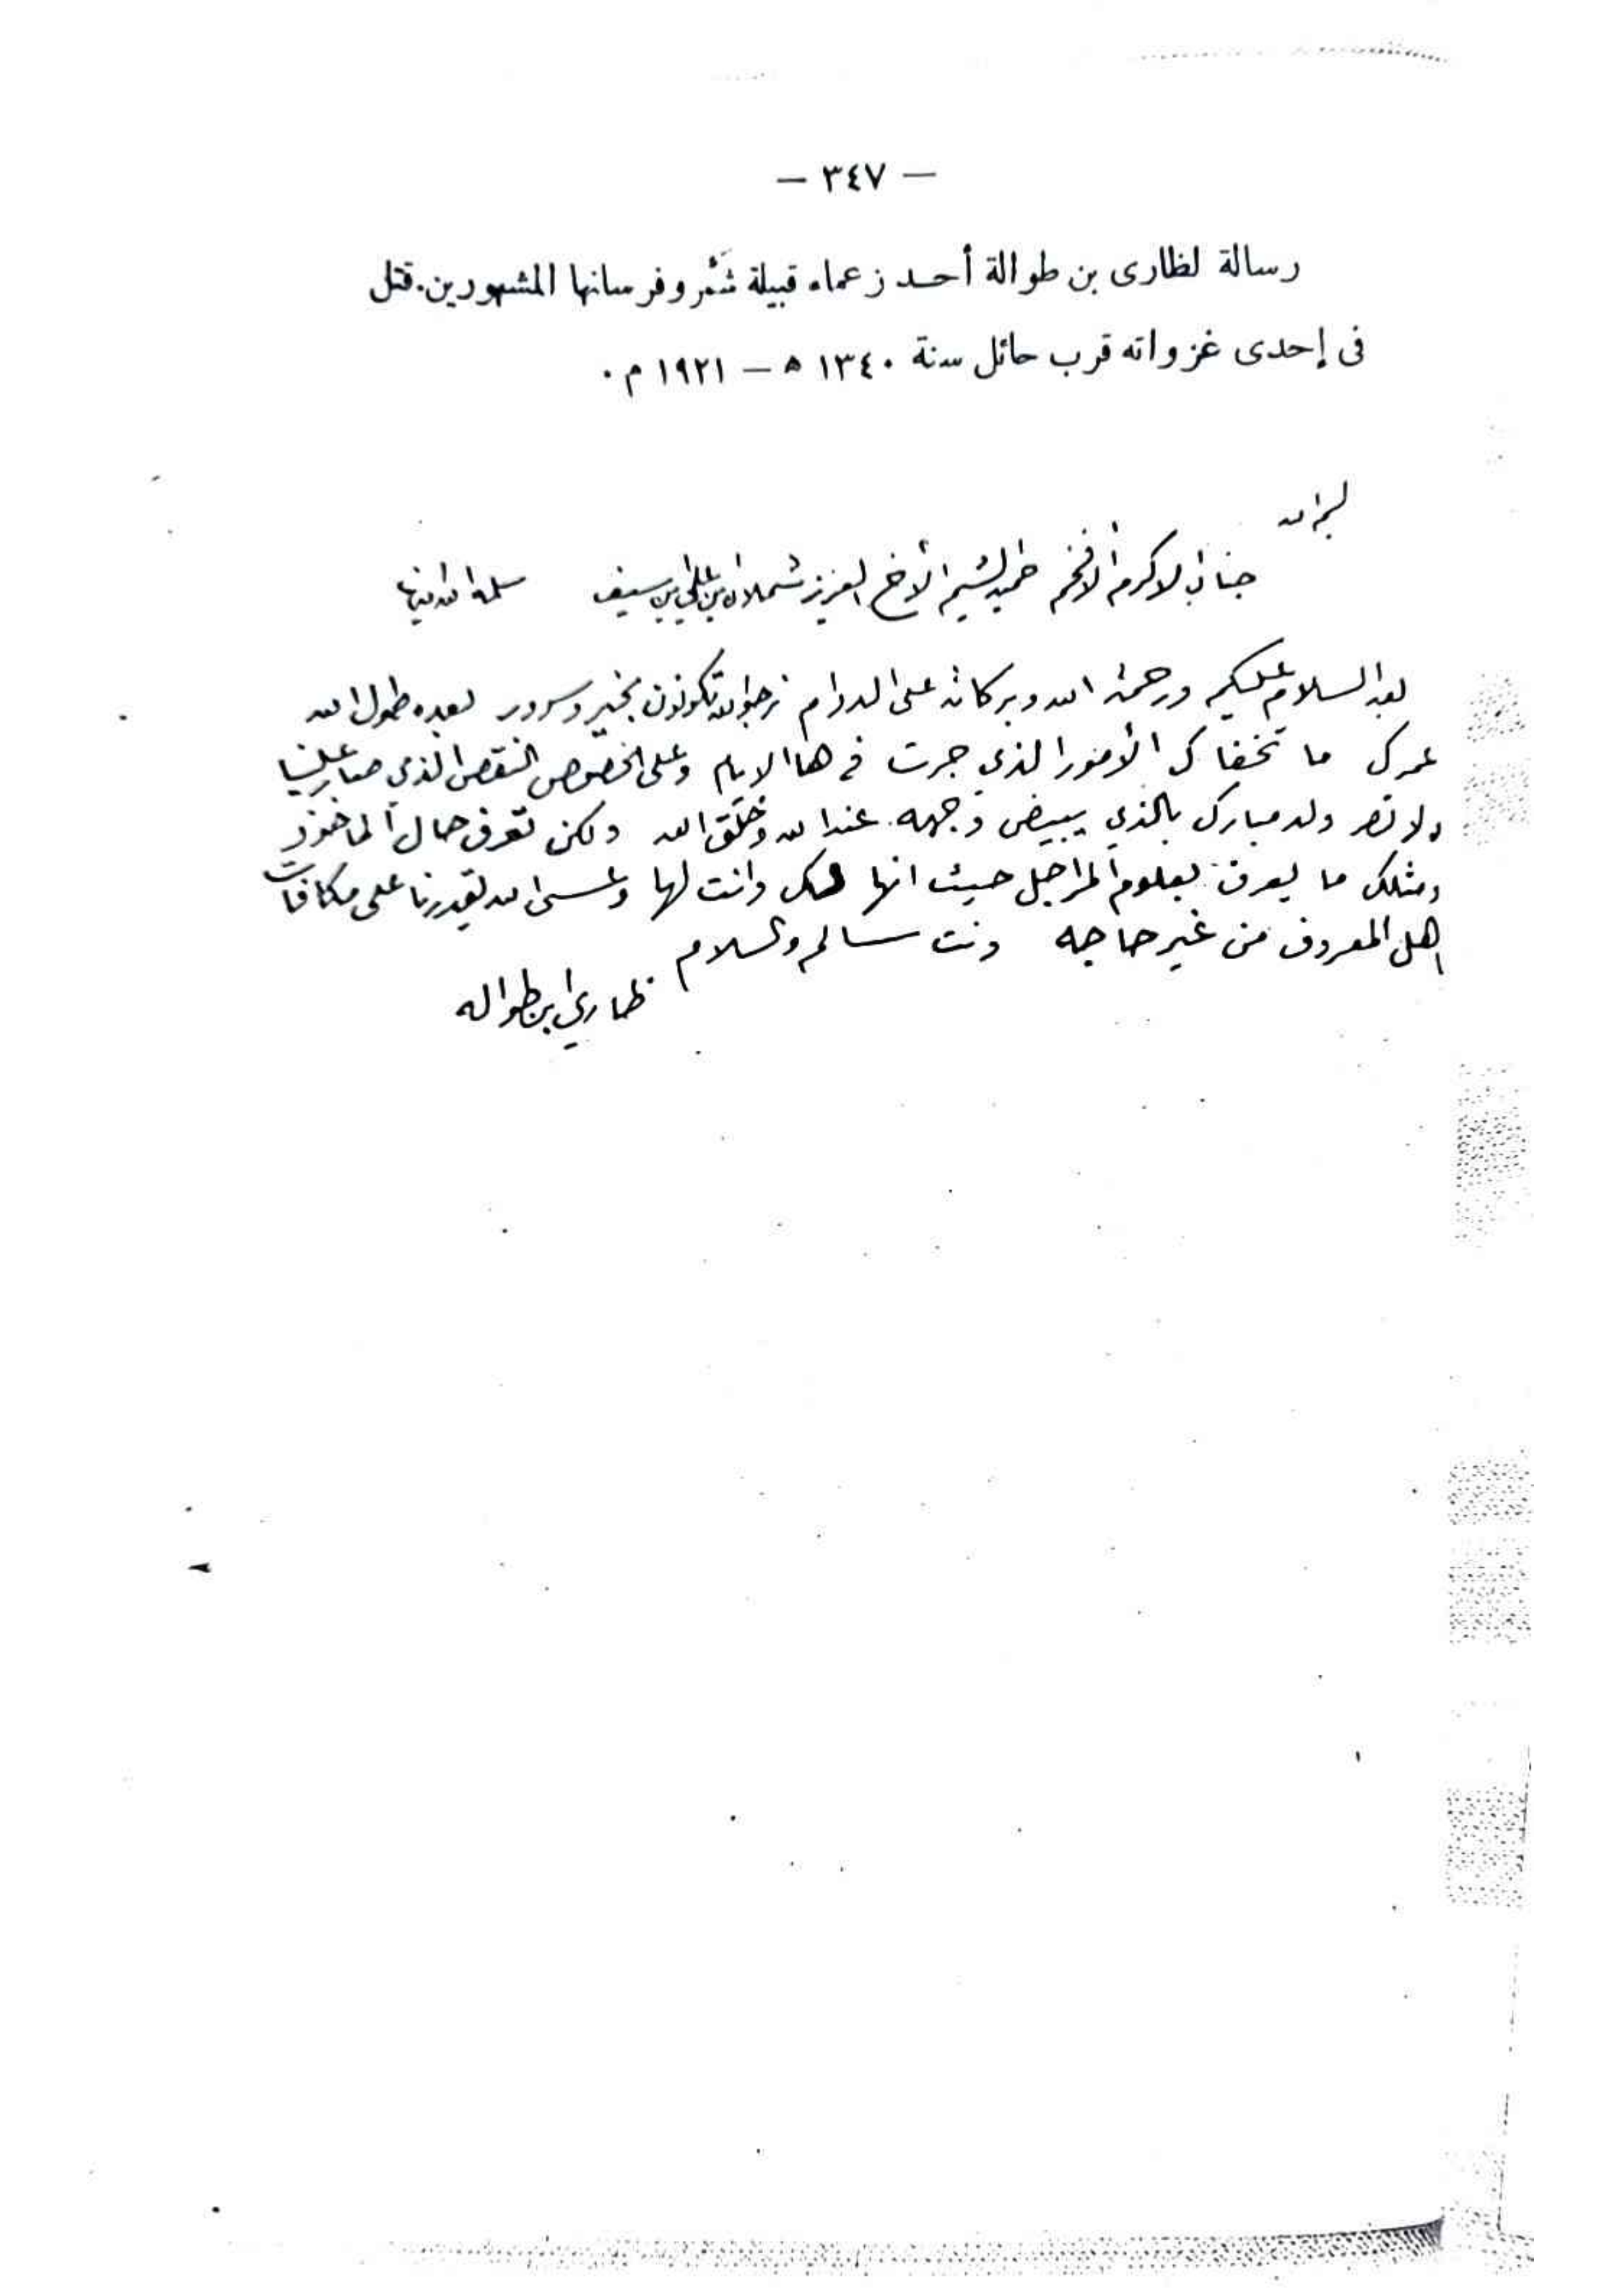 — ٣٤٧ —
رسالة لظارى بن طوالة أحد زعماء قبيلة شَمَّر وفرسانها المشهورين. قتل
فى إحدى غزواته قرب حائل سنة ١٣٤٠ ه — ١٩٢١ م.
بسم الله
جناب الاكرم الافخم حميد الشيم الأخ العزيز شملان بن علي بن سيف سلمه الله
بعد السلام عليكم ورحمة الله وبركاته على الدوام نرجوا الله تكونون بخير وسرور بعده طول الله
عمرك ما تخفاك الأمور الذي جرت في هاالايام وعلى الخصوص النقص الذي صار علينا
ولا قصر ولد مبارك بالذي يبيض وجهه عند الله وخلق الله ولكن تعرف حال الماخوذ
ومثلك ما يعرف بعلوم المراجل حيث انها لك وانت لها وعسى الله يقدرنا على مكافات
اهل المعروف من غير حاجه ونت سالم والسلام
ظاري ابن طواله